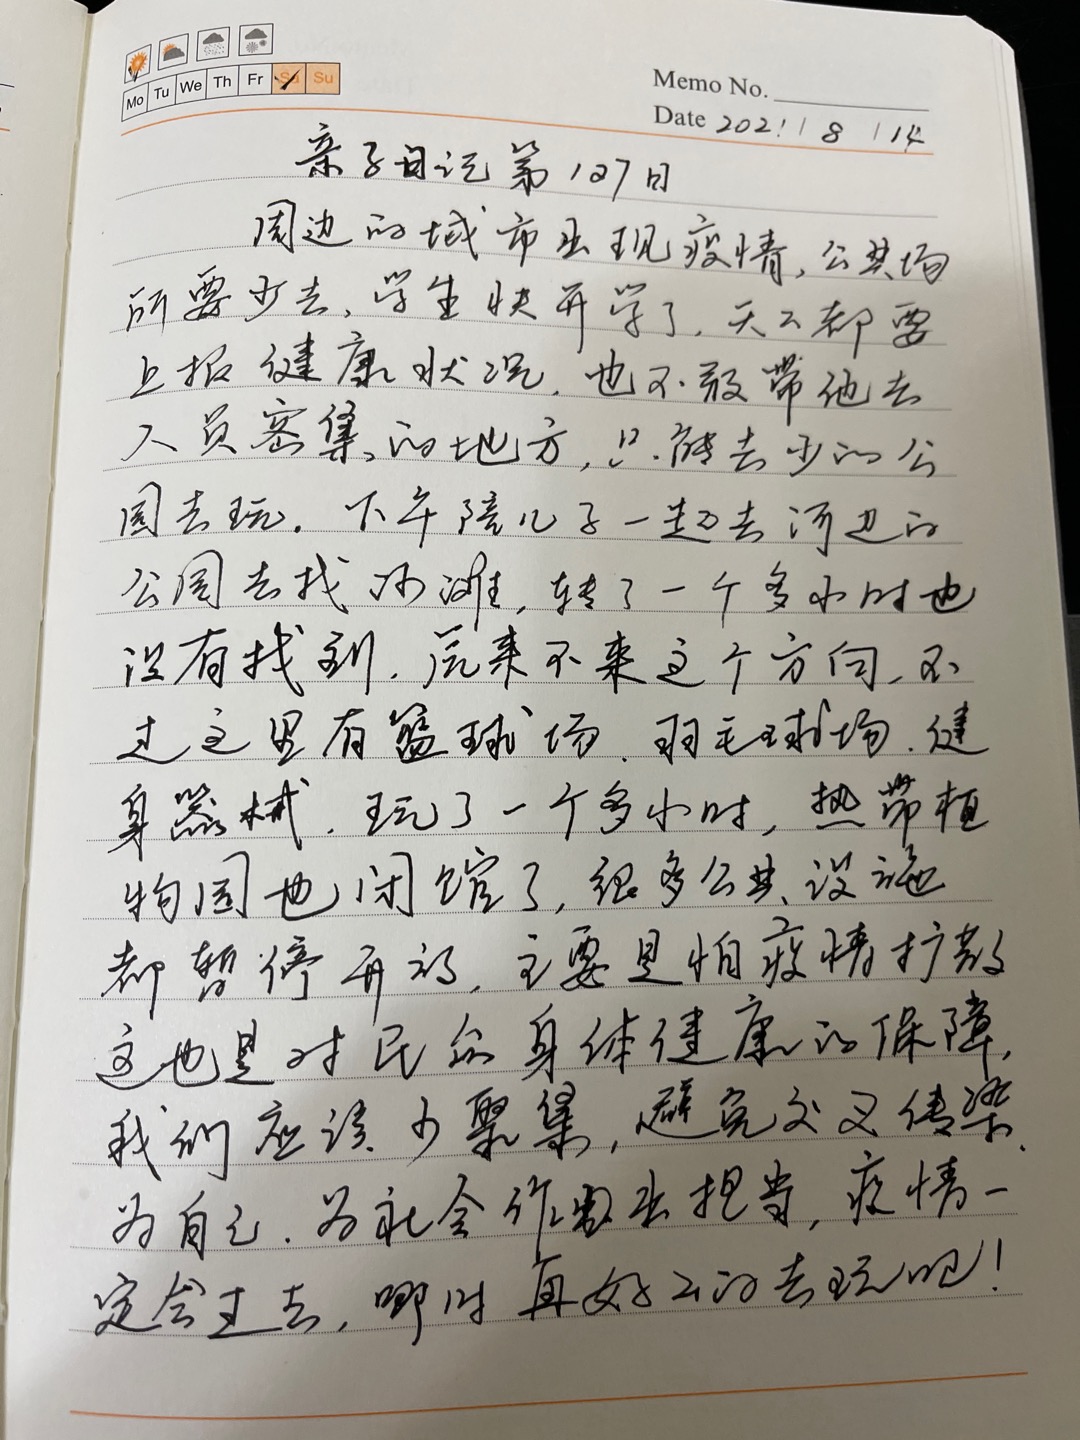 Mo Tu We Th Fr Sa Su
Memo No.
Date 2021 / 8 / 14
亲子日记第127日
周边的城市出现疫情,公共场
所要少去,学生快开学了,天天都要
上报健康状况,也不敢带他去
人员密集的地方,只能去少的公
园去玩。下午陪儿子一起去河边的
公园去找沙滩,转了一个多小时也
没有找到,原来不来这个方向,不
过这里有篮球场、羽毛球场、健
身器械,玩了一个多小时,热带植
物园也闭馆了,很多公共设施
都暂停开放,主要是怕疫情扩散
这也是对民众身体健康的保障,
我们应该少聚集,避免交叉传染,
为自己、为社会作出担当,疫情一
定会过去,那时再好好的去玩吧!